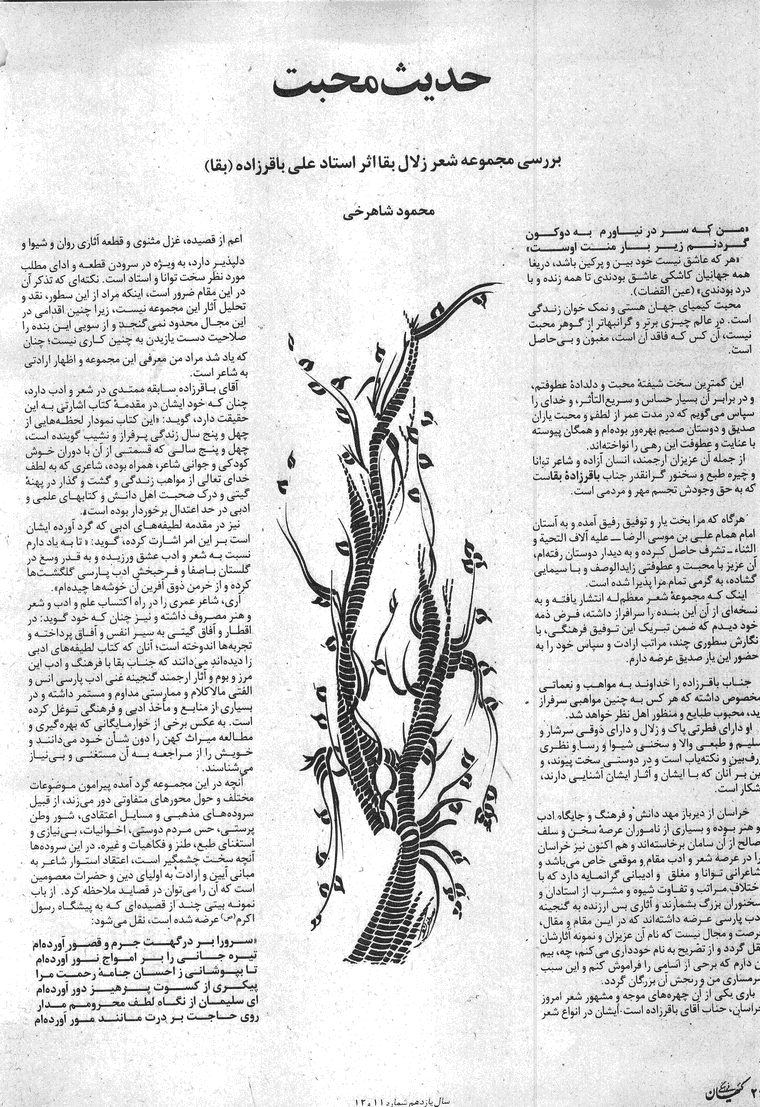 حدیث محبت
بررسی مجموعه شعر زلال بقا اثر استاد علی باقرزاده (بقا)
محمود شاهرخی
«من که سر در نیاورم به دوکون
گردنم زیر بار منت اوست»
«هر که عاشق نیست خود بین و پرکین باشد، دریغا
همه جهانیان کاشکی عاشق بودندی تا همه زنده و با
درد بودندی» (عین القضات).
محبت کیمیای جهان هستی و نمک خوان زندگی
است. در عالم چیزی برتر و گرانبهاتر از گوهر محبت
نیست، آن کس که فاقد آن است، مغبون و بی‌حاصل
است.
این کمترین سخت شیفتهٔ محبت و دلدادهٔ عطوفتم،
و در برابر آن بسیار حساس و سریع‌التأثر، و خدای را
سپاس می‌گویم که در مدت عمر از لطف و محبت یاران
صدیق و دوستان صمیم بهره‌ور بوده‌ام و همگان پیوسته
با عنایت و عطوفت این رهی را نواخته‌اند.
از جمله آن عزیزان ارجمند، انسان آزاده و شاعر توانا
و چیره طبع و سخنور گرانقدر جناب باقرزادهٔ بقاست
که به حق وجودش تجسم مهر و مردمی است.
هرگاه که مرا بخت یار و توفیق رفیق آمده و به آستان
امام همام علی بن موسی الرضا ــ علیه آلاف التحیة و
الثناء ــ تشرف حاصل کرده و به دیدار دوستان رفته‌ام،
آن عزیز با محبت و عطوفتی زایدالوصف و با سیمایی
گشاده، به گرمی تمام مرا پذیرا شده است.
اینک که مجموعهٔ شعر معظم‌له انتشار یافته و به
نسخه‌ای از آن این بنده را سرافراز داشته، فرض ذمه
خود دیدم که ضمن تبریک این توفیق فرهنگی، با
نگارش سطوری چند، مراتب ارادت و سپاس خود را به
حضور این یار صدیق عرضه دارم.
جناب باقرزاده را خداوند به مواهب و نعماتی
مخصوص داشته که هر کس به چنین مواهبی سرفراز
ید، محبوب طبایع و منظور اهل نظر خواهد شد.
او دارای فطرتی پاک و زلال و دارای ذوقی سرشار و
سلیم و طبعی والا و سخنی شیوا و رسا و نظری
ژرف‌بین و نکته‌یاب است و در دوستی سخت پیوند، و
ین بر آنان که با ایشان و آثار ایشان آشنایی دارند،
شکار است.
خراسان از دیرباز مهد دانش و فرهنگ و جایگاه ادب
و هنر بوده و بسیاری از ناموران عرصهٔ سخن و سلف
صالح از آن سامان برخاسته‌اند و هم اکنون نیز خراسان
را در عرصه شعر و ادب مقام و موقعی خاص می‌باشد و
شاعرانی توانا و مفلق و ادیبانی گرانمایه دارد که با
ختلاف مراتب و تفاوت شیوه و مشرب از استادان و
سخنوران بزرگ بشمارند و آثاری بس ارزنده به گنجینه
دب پارسی عرضه داشته‌اند که در این مقام و مقال،
فرصت و مجال نیست که نام آن عزیزان و نمونه آثارشان
نقل گردد و از تصریح به نام خودداری می‌کنم، چه، بیم
ن دارم که برخی از اسامی را فراموش کنم و این سبب
شرمساری من و رنجش آن بزرگان گردد.
باری یکی از آن چهره‌های موجه و مشهور شعر امروز
خراسان، جناب آقای باقرزاده است. ایشان در انواع شعر
اعم از قصیده، غزل مثنوی و قطعه آثاری روان و شیوا و
دلپذیر دارد، به ویژه در سرودن قطعه و ادای مطلب
مورد نظر سخت توانا و استاد است. نکته‌ای که تذکر آن
در این مقام ضرور است، اینکه مراد از این سطور، نقد و
تحلیل آثار این مجموعه نیست، زیرا چنین اقدامی در
این مجال محدود نمی‌گنجد و از سویی این بنده را
صلاحیت دست یازیدن به چنین کاری نیست؛ چنان
که یاد شد مراد من معرفی این مجموعه و اظهار ارادتی
به شاعر است.
آقای باقرزاده سابقه ممتدی در شعر و ادب دارد،
چنان که خود ایشان در مقدمهٔ کتاب اشارتی به این
حقیقت دارد، گوید: «این کتاب نمودار لحظه‌هایی از
چهل و پنج سال زندگی پرفراز و نشیب گوینده است،
چهل و پنج سالی که قسمتی از آن با دوران خوش
کودکی و جوانی شاعر، همراه بوده، شاعری که به لطف
خدای تعالی از مواهب زندگی و گشت و گذار در پهنهٔ
گیتی و درک صحبت اهل دانش و کتابهای علمی و
ادبی در حد اعتدال برخوردار بوده است».
نیز در مقدمه لطیفه‌های ادبی که گرد آورده ایشان
است بر این امر اشارت کرده، گوید: «تا به یاد دارم
نسبت به شعر و ادب عشق ورزیده و به قدر وسع در
گلستان باصفا و فرحبخش ادب پارسی گلگشت‌ها
کرده و از خرمن ذوق آفرین آن خوشه‌ها چیده‌ام».
آری، شاعر عمری را در راه اکتساب علم و ادب و شعر
و هنر مصروف داشته و نیز چنان که خود گوید: در
اقطار و آفاق گیتی به سیر انفس و آفاق پرداخته و
تجربه‌ها اندوخته است؛ آنان که کتاب لطیفه‌های ادبی
را دیده‌اند می‌دانند که جناب بقا با فرهنگ و ادب این
مرز و بوم و آثار ارجمند گنجینه غنی ادب پارسی انس و
الفتی مالاکلام و ممارستی مداوم و مستمر داشته و در
بسیاری از منابع و مآخذ ادبی و فرهنگی توغل کرده
است. به عکس برخی از خوارمایگانی که بهره‌گیری و
مطالعه میراث کهن را دون شأن خود می‌دانند و
خویش را از مراجعه به آن مستغنی و بی‌نیاز
می‌شناسند.
آنچه در این مجموعه گرد آمده پیرامون موضوعات
مختلف و حول محورهای متفاوتی دور می‌زند، از قبیل
سروده‌های مذهبی و مسایل اعتقادی، شور وطن
پرستی، حس مردم دوستی، اخوانیات، بی‌نیازی و
استغنای طبع، طنز و فکاهیات و غیره. در این سروده‌ها
آنچه سخت چشمگیر است، اعتقاد استوار شاعر به
مبانی آیین و ارادت به اولیای دین و حضرات معصومین
است که آن را می‌توان در قصاید ملاحظه کرد. از باب
نمونه بیتی چند از قصیده‌ای که به پیشگاه رسول
اکرم(ص) عرضه شده است، نقل می‌شود:
«سرورا بر درگهت جرم و قصور آورده‌ام
تیره جانی را بر امواج نور آورده‌ام
تا بپوشانی ز احسان جامهٔ رحمت مرا
پیکری از کسوت پرهیز دور آورده‌ام
ای سلیمان از نگاه لطف محرومم مدار
روی حاجت بر درت مانند مور آورده‌ام
کیهان فرهنگی
سال یازدهم شماره ۱۱ و ۱۲